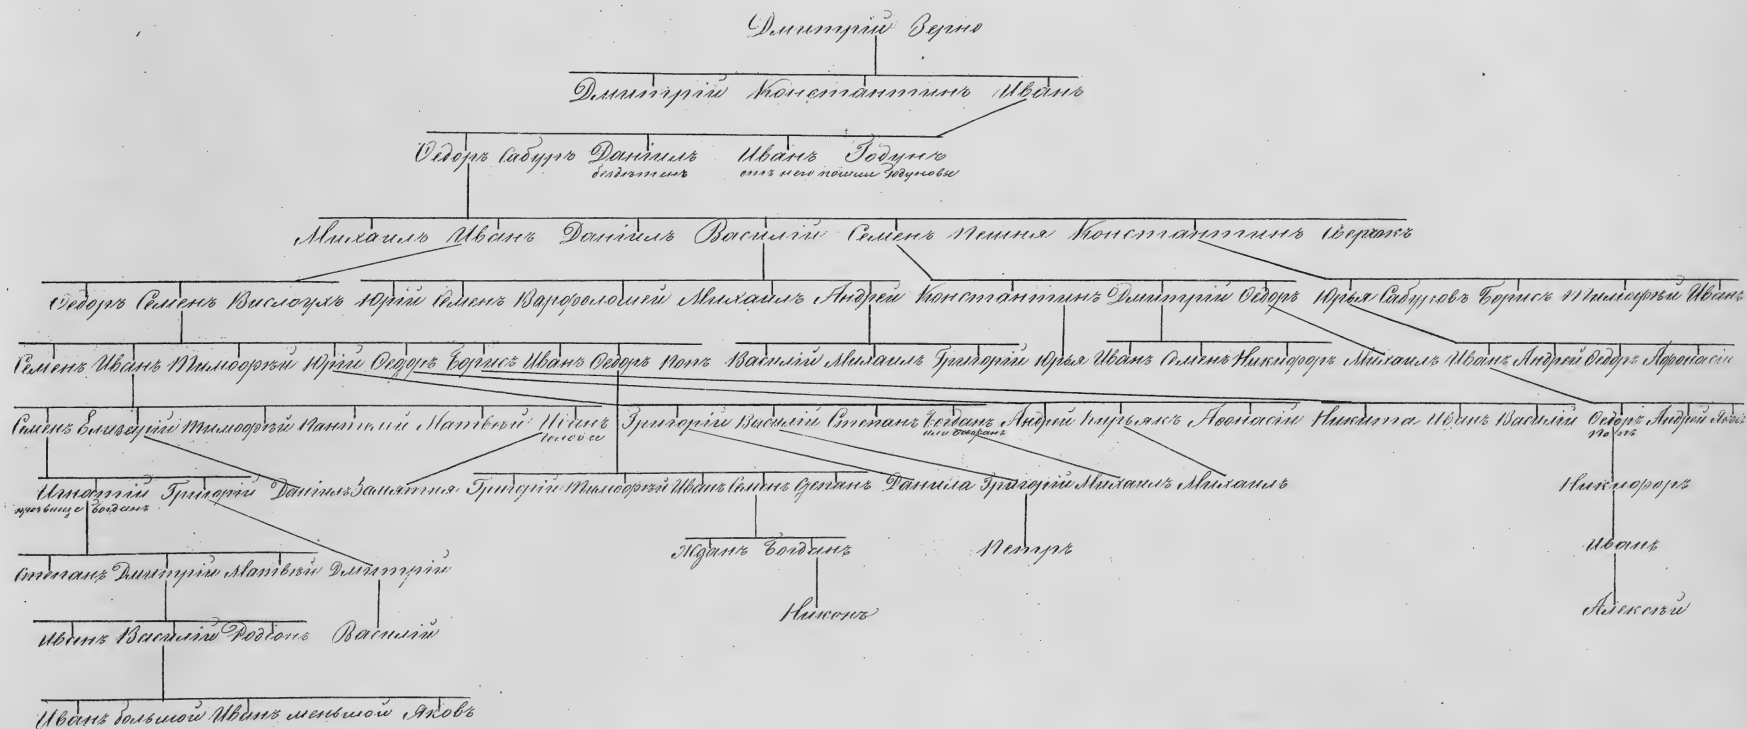 Дмитрій Зерно
Дмитрій Константинъ Иванъ
Ѳедоръ Сабуръ Даніилъ Иванъ Годунъ
бездѣтенъ отъ него пошли Годуновы
Михаилъ Иванъ Даніилъ Василій Семенъ Пешня Константинъ Сверчокъ
Ѳедоръ Семенъ Вислоухъ Юрій Семенъ Варфоломей Михаилъ Андрей Константинъ Дмитрій Ѳедоръ Юрья Сабуровъ Борисъ Тимофѣй Иванъ
Семенъ Иванъ Тимофѣй Юрій Ѳедоръ Борисъ Иванъ Ѳедоръ Поп Василій Михаилъ Григорій Юрья Иванъ Семенъ Никифоръ Михаилъ Иванъ Андрей Ѳедоръ Афонасій
Семенъ Елизарій Тимофѣй Матвѣй Григорій Василій Степанъ Богданъ Андрей Кирьякъ Афонасій Никита Иванъ Василій Ѳедоръ Андрей
Игнатій Григорій Даніилъ Замятня Григорій Тимофѣй Иванъ Семенъ Степанъ Данила Григорій Михаилъ Михаилъ Никифоръ
прозвище Богданъ
Степанъ Дмитрій Матвѣй Дмитрій Жданъ Богданъ Петръ Иванъ
Иванъ Василій Родіонъ Василій Никонъ Алексѣй
Иванъ большой Иванъ меньшой Яковъ